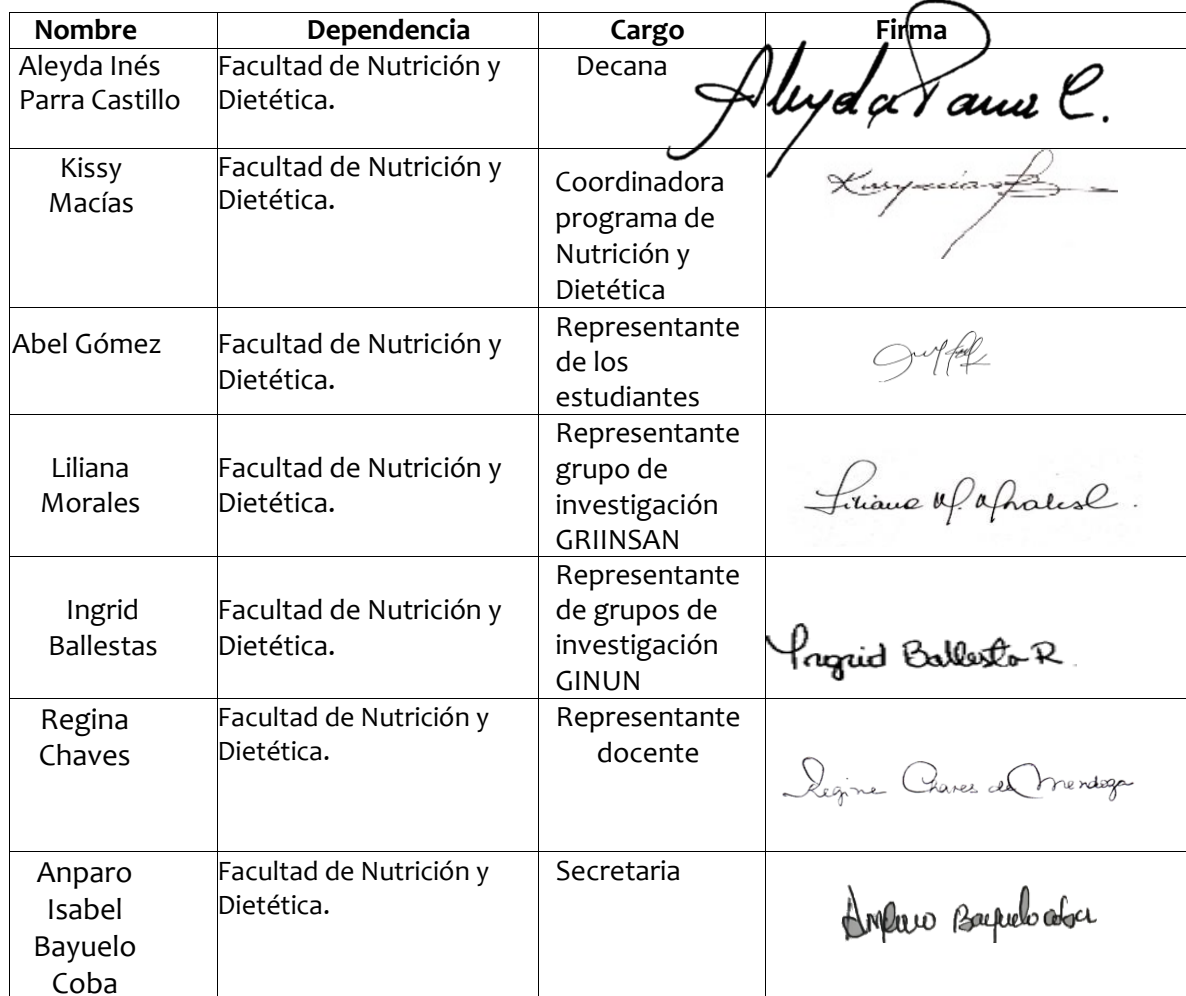 Nombre Dependencia Cargo Firma
Aleyda Inés
Parra Castillo
Facultad de Nutrición y
Dietética.
Decana
Aleyda Parra C.
Kissy
Macías
Facultad de Nutrición y
Dietética.
Coordinadora
programa de
Nutrición y
Dietética
Abel Gómez
Facultad de Nutrición y
Dietética.
Representante
de los
estudiantes
Liliana
Morales
Facultad de Nutrición y
Dietética.
Representante
grupo de
investigación
GRIINSAN
Liliana M.
Ingrid
Ballestas
Facultad de Nutrición y
Dietética.
Representante
de grupos de
investigación
GINUN
Ingrid Ballesta R
Regina
Chaves
Facultad de Nutrición y
Dietética.
Representante
docente
Regina Chaves de Mendoza
Anparo
Isabel
Bayuelo
Coba
Facultad de Nutrición y
Dietética.
Secretaria
Amparo Bayuelo coba